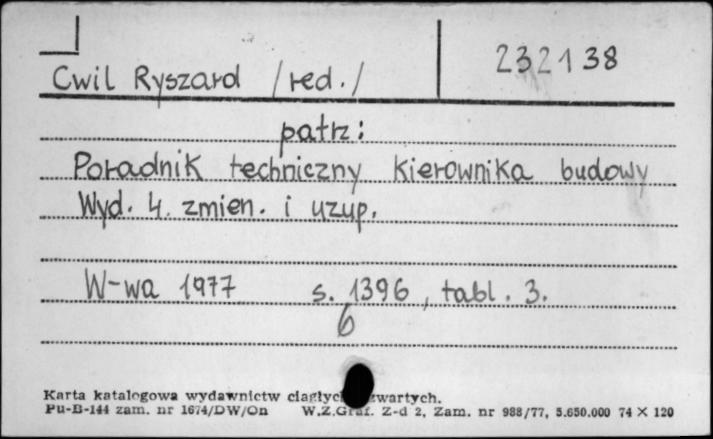 232138
Cwil Ryszard /red./
patrz:
Poradnik techniczny kierownika budowy
Wyd. 4. zmien. i uzup.
W-wa 1977 s. 1396, tabl. 3.
6
Karta katalogowa wydawnictw ciągłych zwartych.
Pu-B-144 zam. nr 1674/DW/On W.Z.Graf. Z-d 2, Zam. nr 988/77, 5.650.000 74 X 120